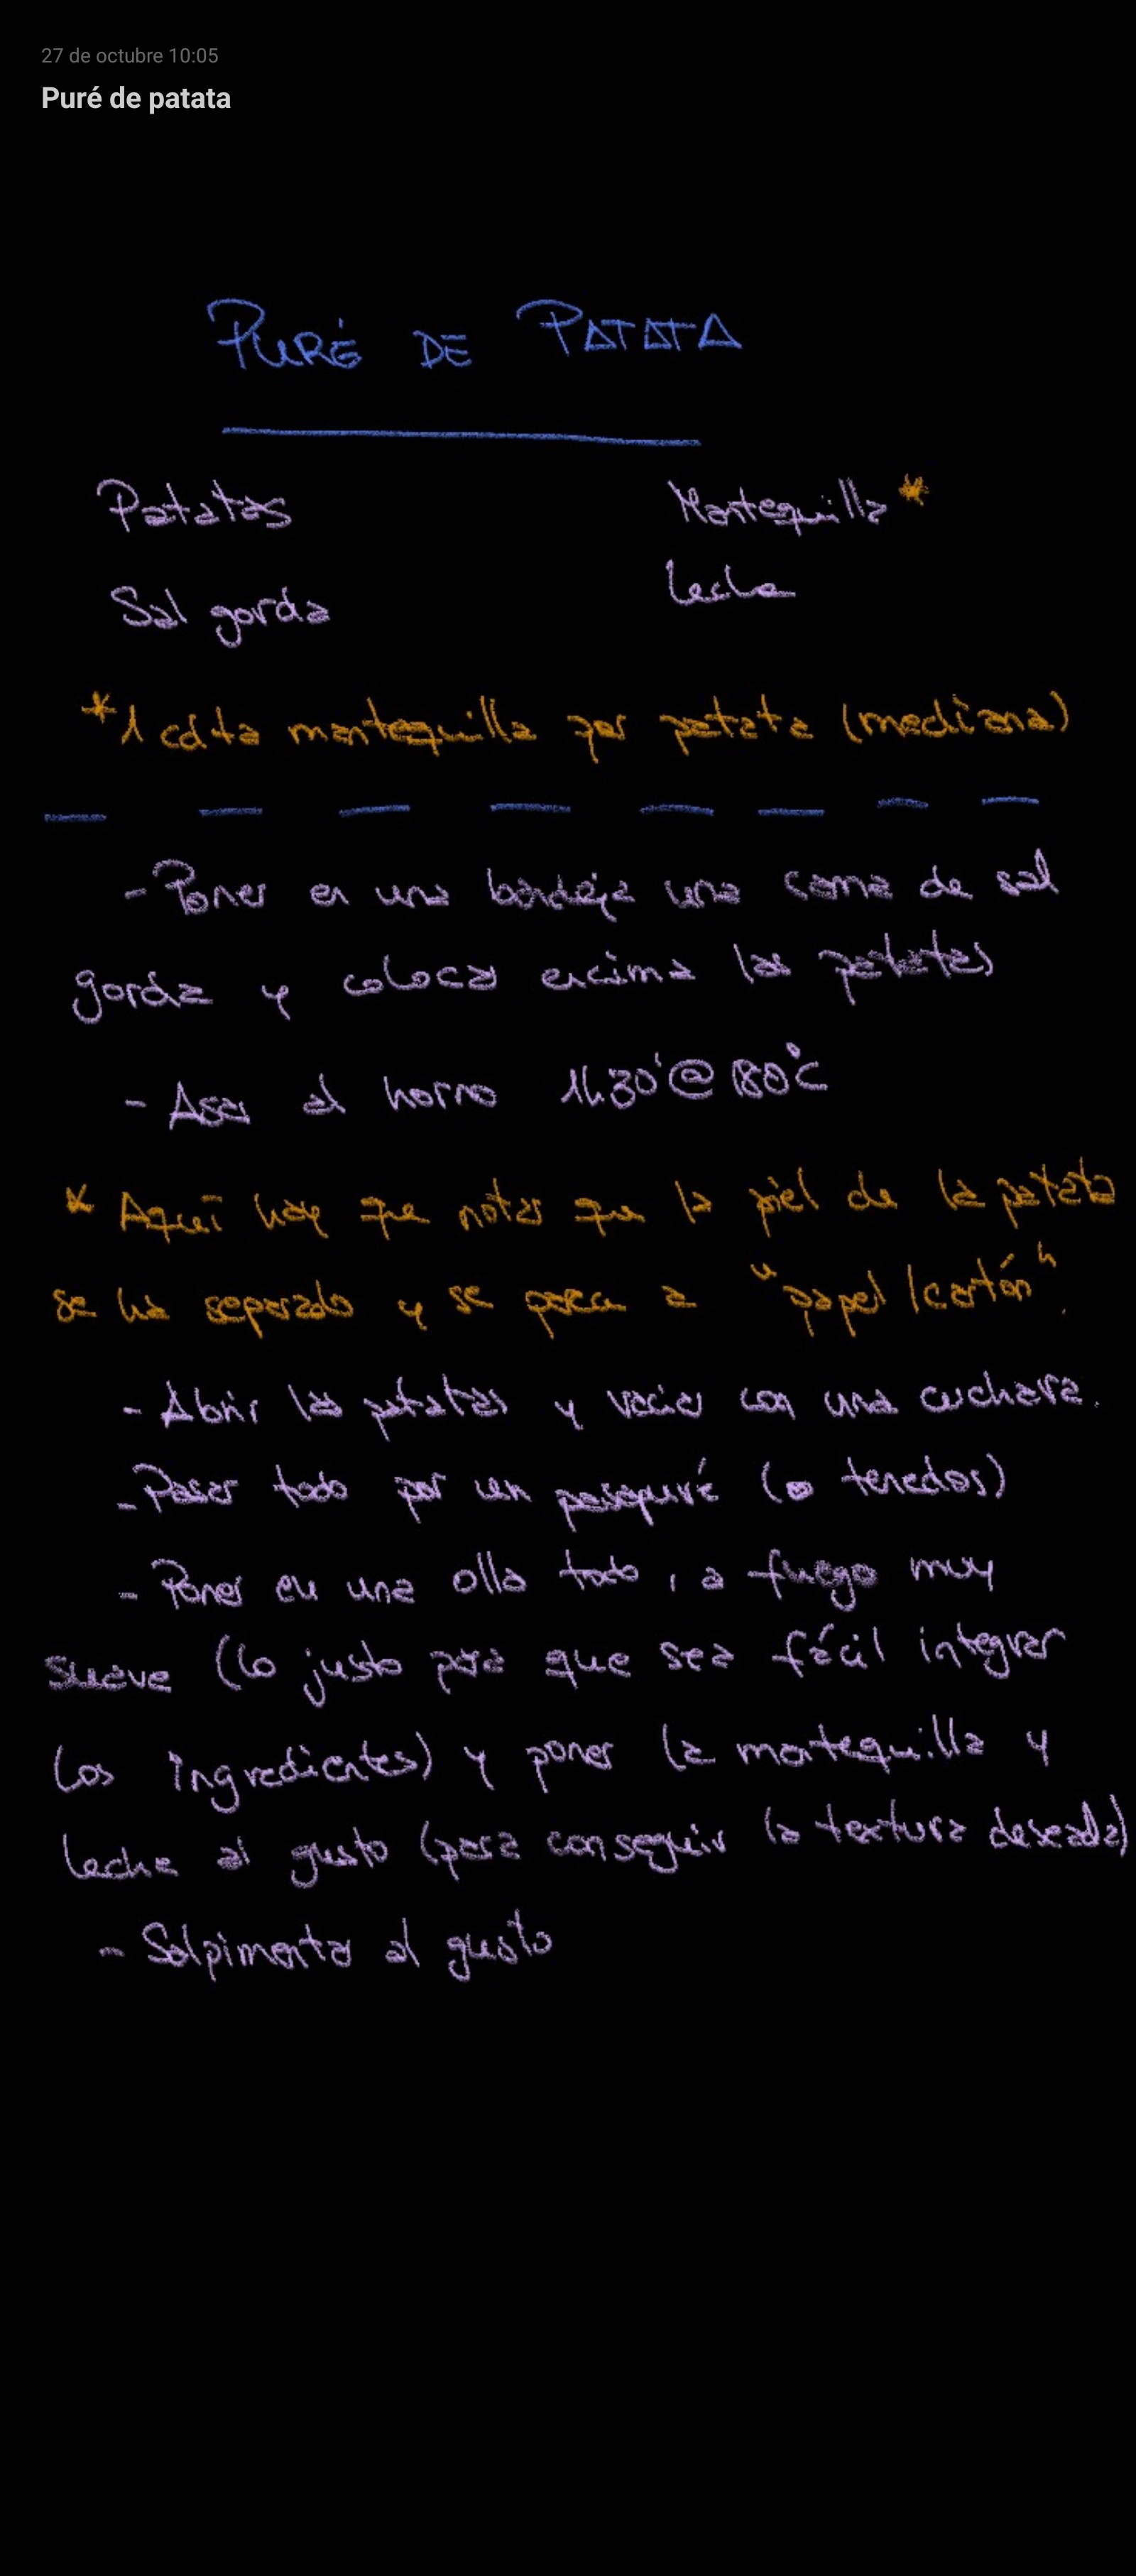 27 de octubre 10:05
Puré de patata
PURÉ DE PATATA
Patatas Mantequilla*
Sal gorda Leche
*1 cdta mantequilla por patata (mediana)
- Poner en una bandeja una cama de sal
gorda y colocar encima las patatas
- Asar al horno 1h30'@180°C
* Aquí hay que notar que la piel de la patata
se ha separado y se parece a "papel/cartón".
- Abrir las patatas y vaciar con una cuchara.
- Pasar todo por un pasapuré (o tenedor)
- Poner en una olla todo, a fuego muy
suave (lo justo para que sea fácil integrar
los ingredientes) y poner la mantequilla y
leche al gusto (para conseguir la textura deseada)
- Salpimentar al gusto